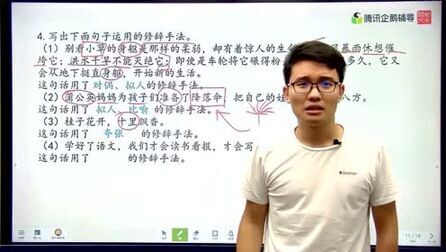 腾讯企鹅辅导
4.写出下面句子运用的修辞手法。
(1)别看小草的身躯是那样的柔弱,却有着惊人的生命 暴雨休想催
垮它;洪水干旱不能灭绝它;即使是车轮将它碾得粉 多久,它又
会从地下挺直身躯,开始新的生活。
这句话用了 对偶、拟人的修辞手法。
(2)蒲公英妈妈为孩子们准备了降落伞,把自己的 八方。
这句话用了 拟人、比喻 的修辞手法。
(3)桂子花开,十里飘香。
这句话用了 夸张 的修辞手法。
(4)学好了语文,我们才会读书看报,才会写
这句话用了 的修辞手法。
11/14